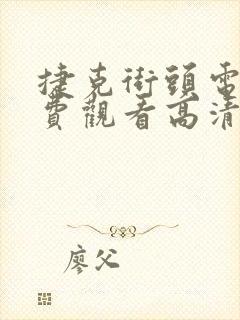 捷克街頭電
費觀看高清
廖父